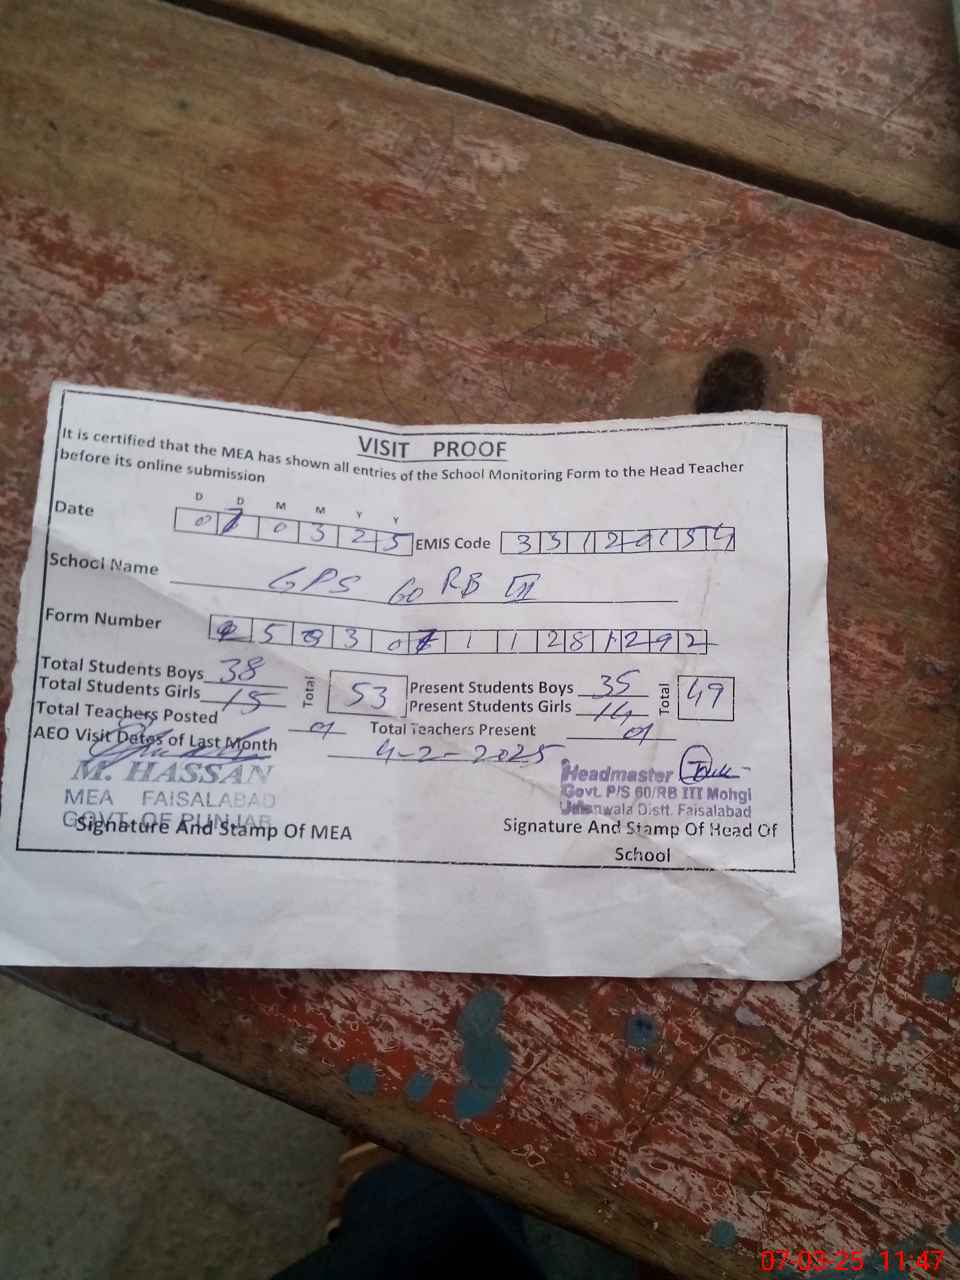 VISIT PROOF
It is certified that the MEA has shown all entries of the School Monitoring Form to the Head Teacher
before its online submission
D D M M Y Y
Date 0 7 0 3 2 5 EMIS Code 3 3 1 2 0 1 5 4
School Name GPS 60 RB III
Form Number 3 0 7 1 1 2 8 1 2 9 2
Total Students Boys 38 Total 53 Present Students Boys 35 Total 49
Total Students Girls 15 Present Students Girls 14
Total Teachers Posted 01 Total Teachers Present 01
AEO Visit Dates of Last Month 4-2-2025
M. HASSAN
MEA FAISALABAD
GOVT. OF PUNJAB
Signature And Stamp Of MEA
Headmaster
Govt. P/S 60/RB III Mohgi
Distt. Faisalabad
Signature And Stamp Of Head Of
School
07-03-25 11:47